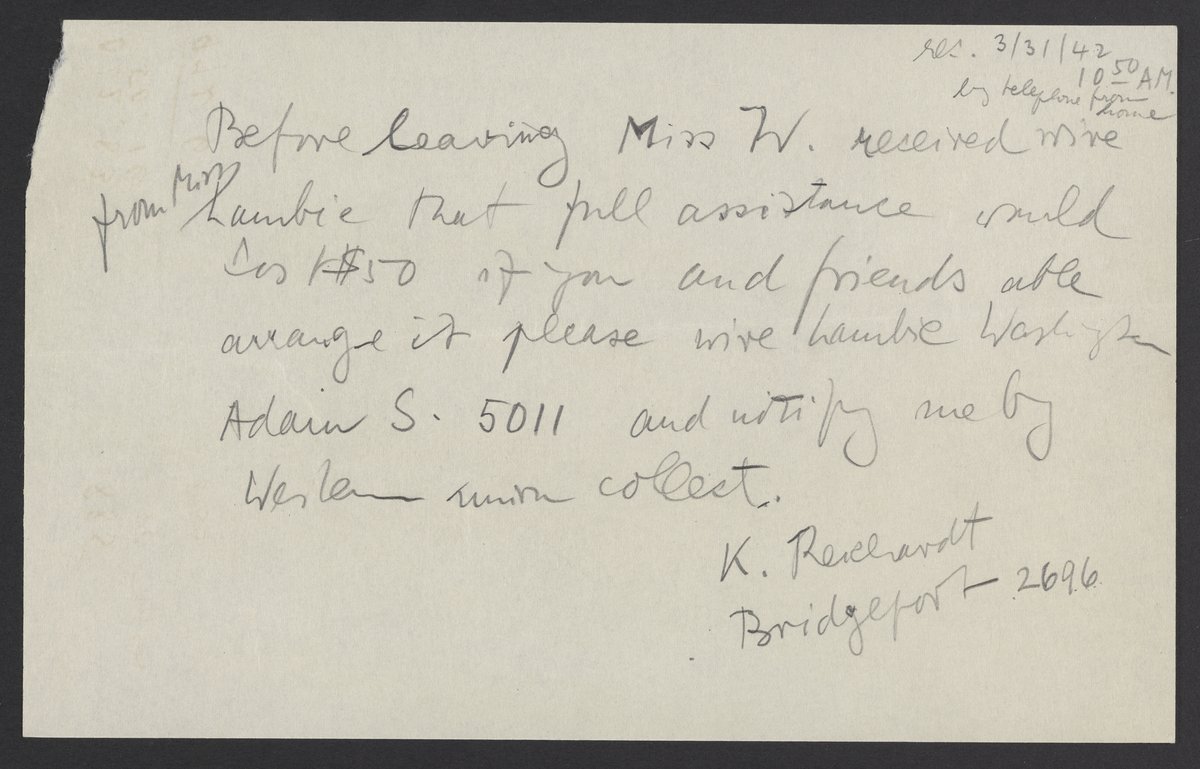 rec. 3/31/42
10 50 A.M.
by telephone from
home
Before leaving Miss W. received wire
from Miss Lambie that full assistance would
cost $50 if you and friends able
arrange it please wire Lambie Washington
Adam S. 5011 and notify me by
Western union collect.
K. Reichardt
Bridgeport 2696